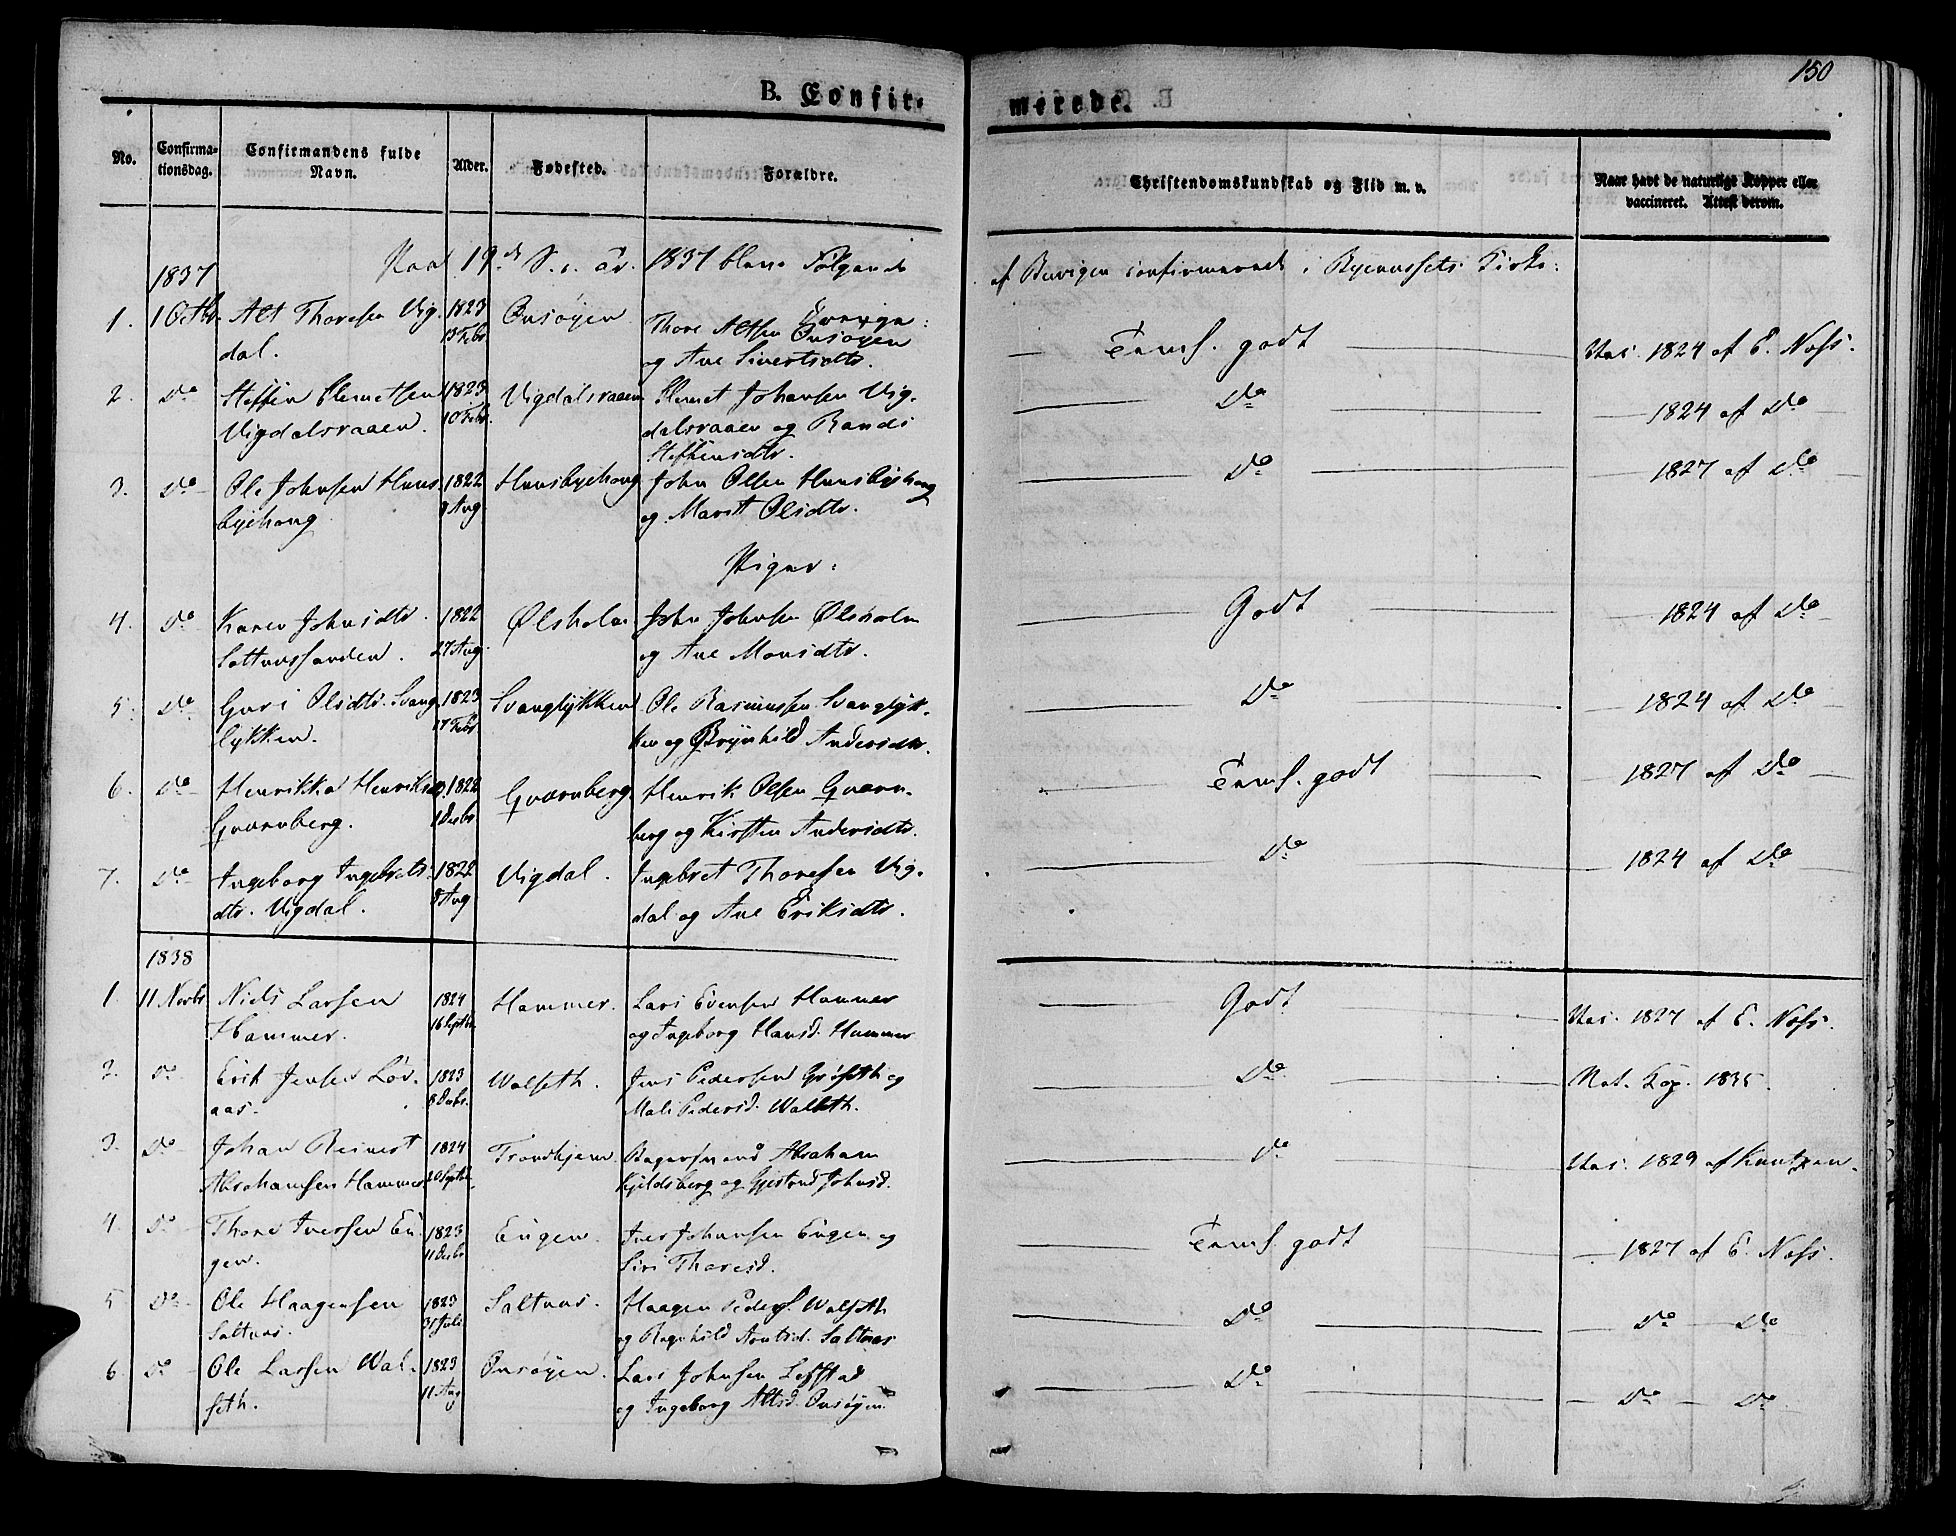 150
B. Confir-
merede.
No.
Confirma-
tionsdag.
Confirmandens fulde
Navn.
Alder.
Fødested.
Forældre.
Christendomskundskab og Flid m. v.
Naar havt de naturlige Kopper eller
vaccineret. Attest derom.
1837
Paa 19de S. e. Tr. 1837 bleve Følgende
af Buvigen confirmerede i Byenæssets Kirke:
1. 1 Octbr. Alt Thoresen Vig-
dal.
1823
13 Febr.
Onsøyen
Thore Altsen
Onsøyen
og Ane Sivertsdtr.
Temml. godt
Vac. 1824 af E. Næss.
2. Do Steffen Clemetsen
Vigdalsraaen.
1823
10 Febr.
Vigdalsraaen
Clemet Johansen Vig-
dalsraaen og Randi
Steffensdtr.
Do
1824 af Do
3. Do Ole Johnsen Huus-
byehaug
1822
9 Aug
Huusbyehaug
John Olsen Huusbyehaug
og Marit Olsdtr.
Do
1827 af Do
Piger:
4. Do Karen Johnsdtr.
Saltnæssanden.
1822
27 Aug.
Ølsholm
John Johnsen Ølsholm
og Ane Monsdtr.
Godt
1824 af Do
5. Do Guri Olsdtr. Svang-
lykken.
1823
17 Febr
Svanglykken
Ole Rasmussen Svanglyk-
ken og Brynhild Andersdtr.
Do
1824 af Do
6. Do Henrikka Henriksd.
Qværnberg.
1822
1 Decbr.
Qværnberg
Henrik Olsen Qværn-
berg og Kirsten Andersdtr.
Temml. godt
1827 af Do
7. Do Ingeborg Ingebrets-
dtr. Vigdal.
1822
8 Aug
Vigdal.
Ingebret Thoresen Vig-
dal og Ane Eriksdtr.
Do
1824 af Do
1838
1. 11 Novbr Niels Larsen
Hammer.
1824
16 Septbr.
Hammer.
Lars Evensen Hammer
og Ingeborg Hansd. Hammer
Godt
Vac. 1827 af E. Næss.
2. Do Erik Jensen Lør-
aas.
1823
8 Decbr.
Walseth.
Jens Pedersen Grøseth og
Mali Pedersd. Walseth.
Do
Nat. Kop. 1835.
3. Do Johan Reinert
Abrahamsen Hammer
1824
20 Septbr.
Trondhjem.
Abraham
Kjeldsberg og Gjertrud Johnsd.
Do
Vac. 1829 af Knutzen.
4. Do Thore Iversen Eü-
gen.
1823
11 Decbr
Eügen.
Iver Johansen Eügen og
Siri Thoresd.
Temml. godt
1827 af E. Næss.
5 Do Ole Haagensen
Saltnæs.
1823
31 Juli
Saltnæs.
Haagen Peders. Walseth
og Ragnhild Arntsd. Saltnæs
Do
Do Do
6. Do Ole Larsen Wal-
seth.
1823
11 Aug
Onsøyen.
Lars Johnsen Leffstad
og Ingeborg Altsd. Onsøyen
Do
Do Do.